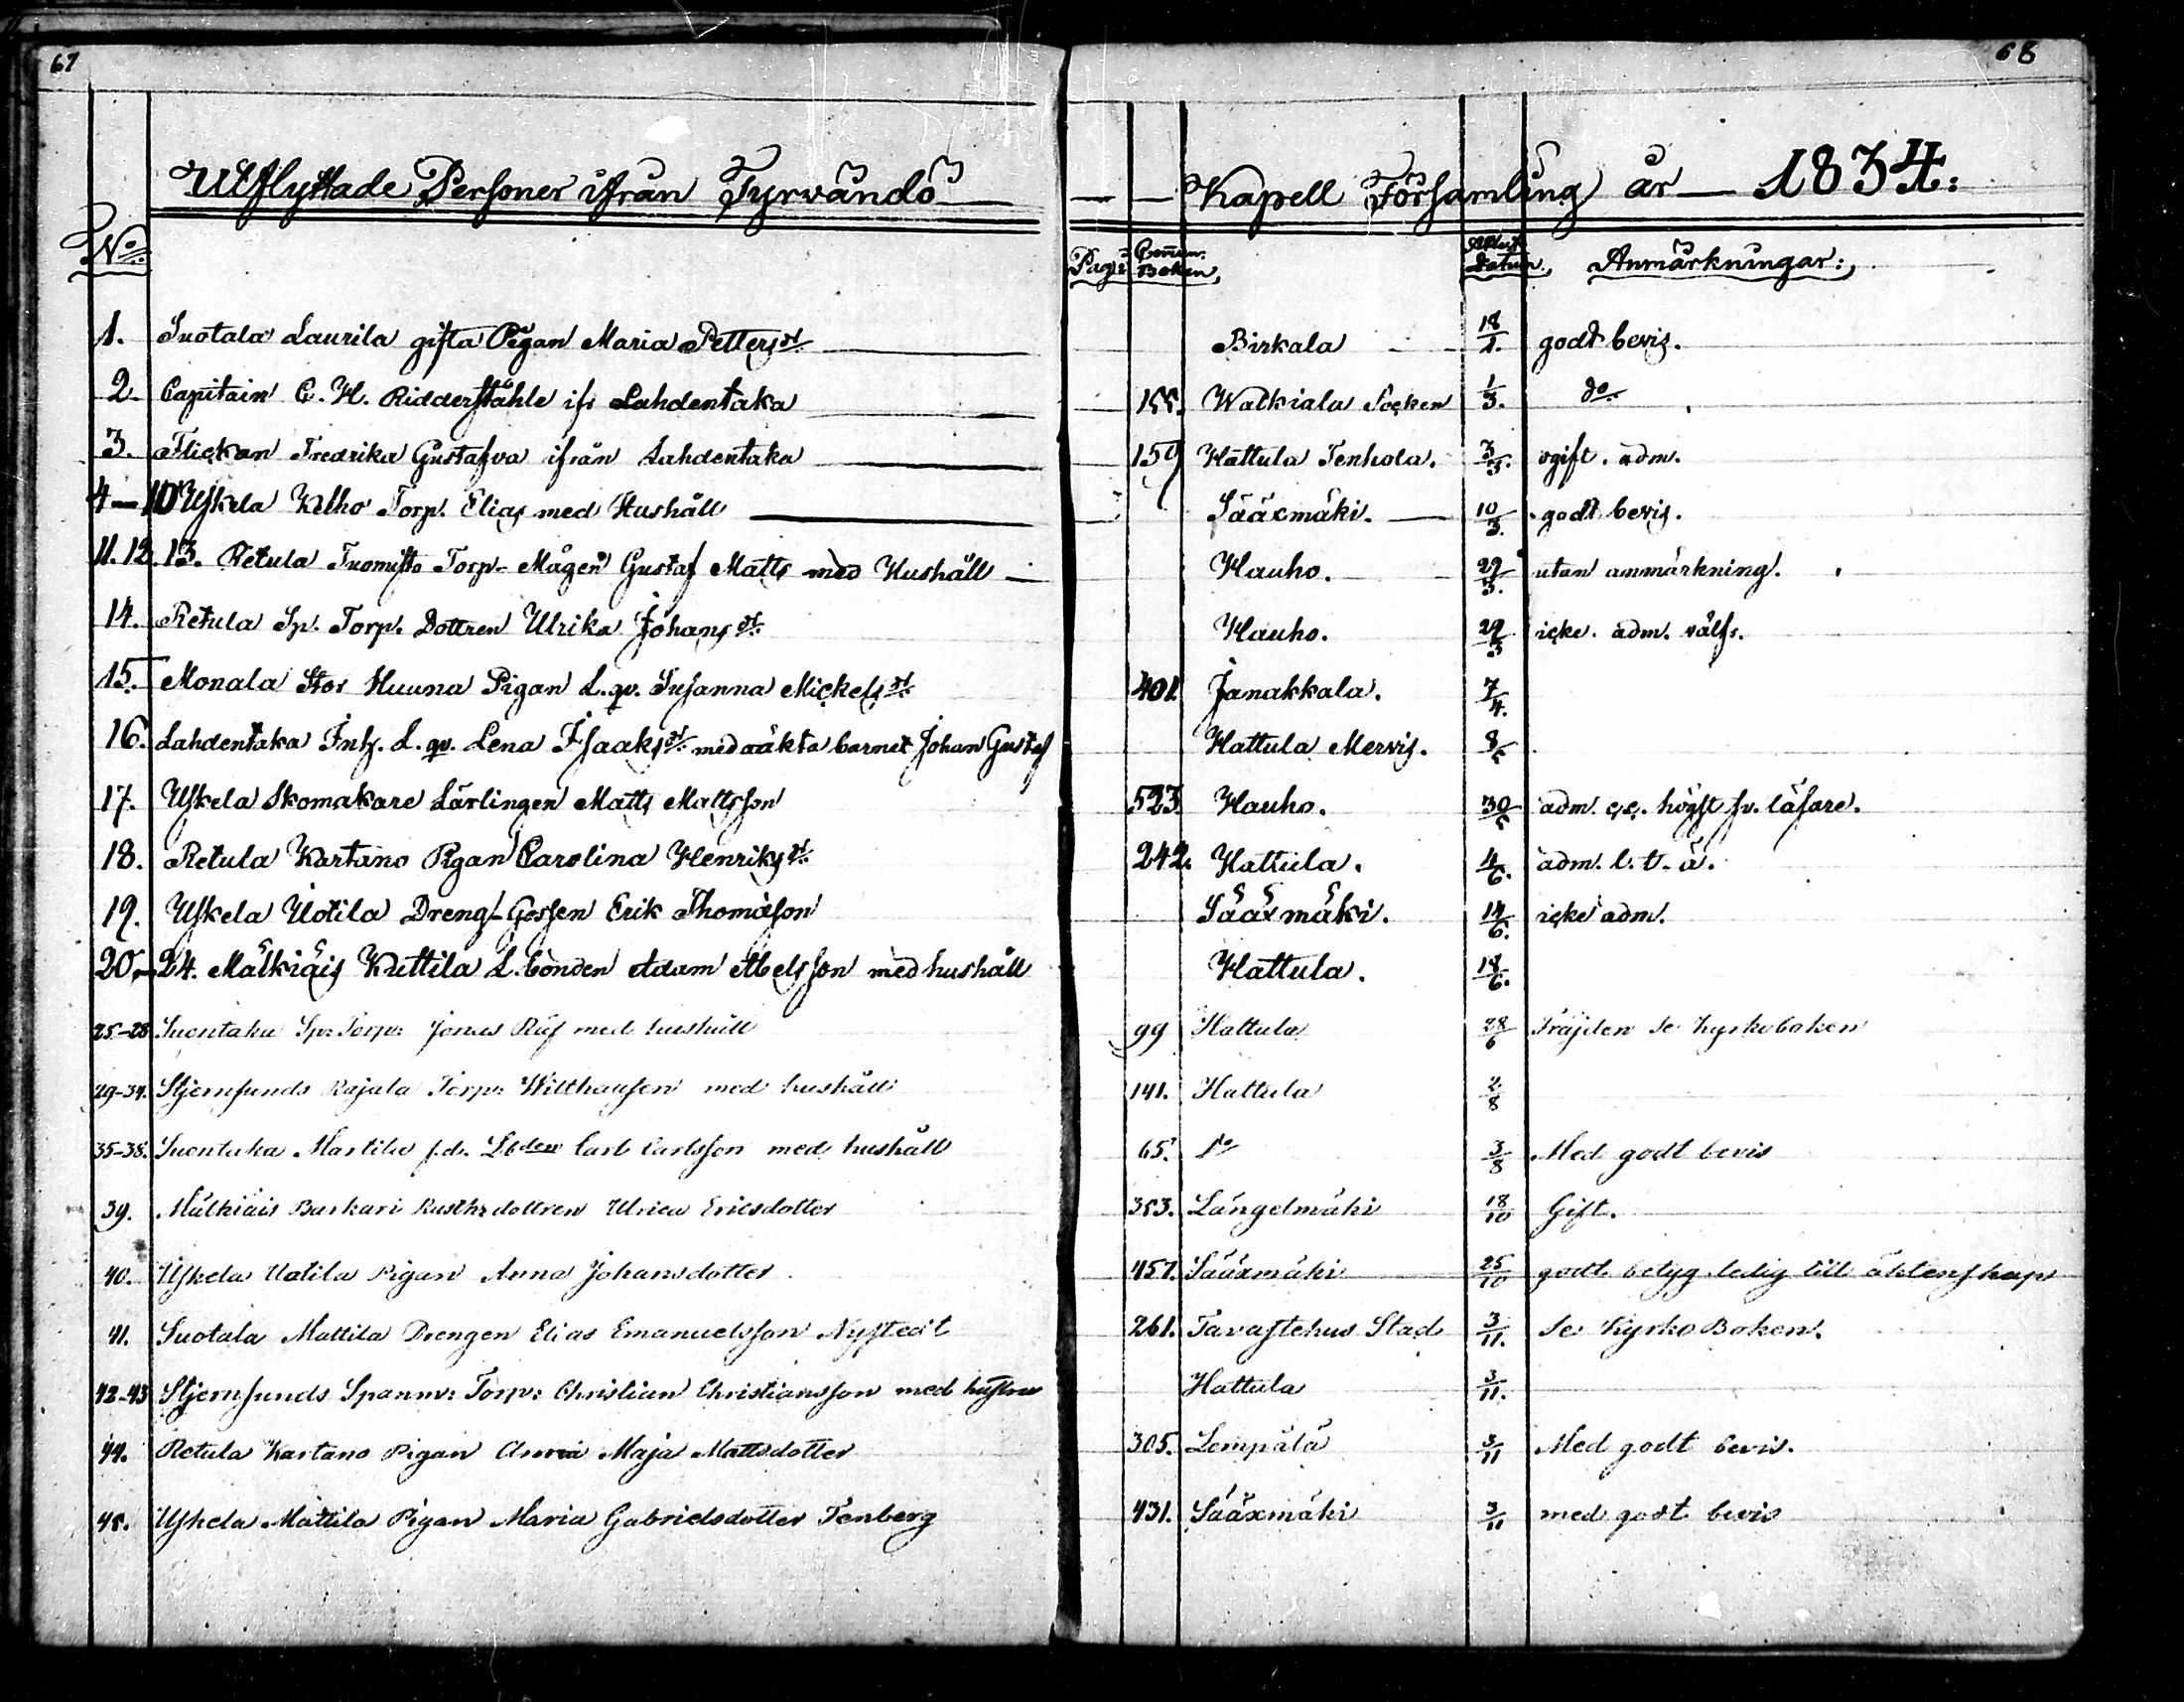 67
68
Utflyttade Personer ifrån Tyrvändö — — Kapell Församling år — 1834.
No. Pag: i Commun: Boken Datum. Anmärkningar:
1. Suotala Laurila gifta Pigan Maria Petters dr. Birkala 18/1. godt bevis.
2. Capitain C. H. Ridderståhle ifr Lahdentaka 155. Walkiala Socken 1/3. do
3. Flickan Fredrika Gustafva ifrån Lahdentaka 159 Hattula Tenhola. 3/3. ogift. adm.
4—10 Uskela Kelho Torp. Elias med Hushåll Sääxmäki. 10/3. godt bevis.
11. 12. 13. Retula Tuomisto Torp- Mågen Gustaf Matts med Hushåll Hauho. 29/3. utan anmärkning.
14. Retula Sp. Torp. Dottren Ulrika Johans dr. Hauho. 29/3 icke. adm. välfr.
15. Monala Stor Huuna Pigan L. qv. Susanna Mickels dr. 401. Janakkala. 7/4.
16. Lahdentaka Inh. L. qv. Lena Isaaks dr. med oäkta barnet Johan Gustaf Hattula Mervis. 8/5
17. Uskela Skomakare Lärlingen Matts Mattsson 523. Hauho. 30/5 adm. högst sv. läsare.
18. Retula Kartano Pigan Carolina Henriks dr. 242. Hattula. 4/6. adm. l. t. ä.
19. Uskela Uotila Dreng-Gossen Erik Thomasson Sääxmäki. 14/6. icke adm.
20-24. Mälkiäis Kuttila L. bonden Adam Abelsson med hushåll Hattula. 18/6.
25-28 Suontaka Sp: Torp: Jonas Räf med hushåll 99 Hattula 28/6 Fräjden se Kyrkoboken
29-34. Stjernsunds Rajala Torp: Wilthausen med hushåll 141. Hattula 2/8
35-38. Suontaka Martila f.d. Lbden Carl Carlsson med hushåll 65. do 3/8 Med godt bevis
39. Mälkiäis Barkari Rusth: dottren Ulrica Ericsdotter 353. Längelmäki 18/10 Gift.
40. Uskela Uotila Pigan Anna Johansdotter 457. Sääxmäki 25/10 godt betyg ledig till äktenskap
41. Suotala Mattila Drengen Elias Emanuelsson Nystedt 261. Tavastehus Stad 3/11. Se Kyrko Boken.
42-43 Stjernsunds Spanm: Torp: Christian Christiansson med hustru Hattula 3/11.
44. Retula Kartano Pigan Anna Maja Mattsdotter 305. Lempälä 3/11 Med godt bevis.
45. Uskela Mattila Pigan Maria Gabrielsdotter Tenberg 431. Sääxmäki 3/11 med godt bevis